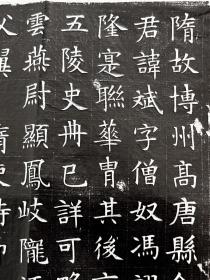 隋故博州高唐縣令
君諱斌字僧奴馮翊
隆寔聯華胄其後京
五陵史冊已詳可略
雲燕尉顯鳳岐隴
父翼隋